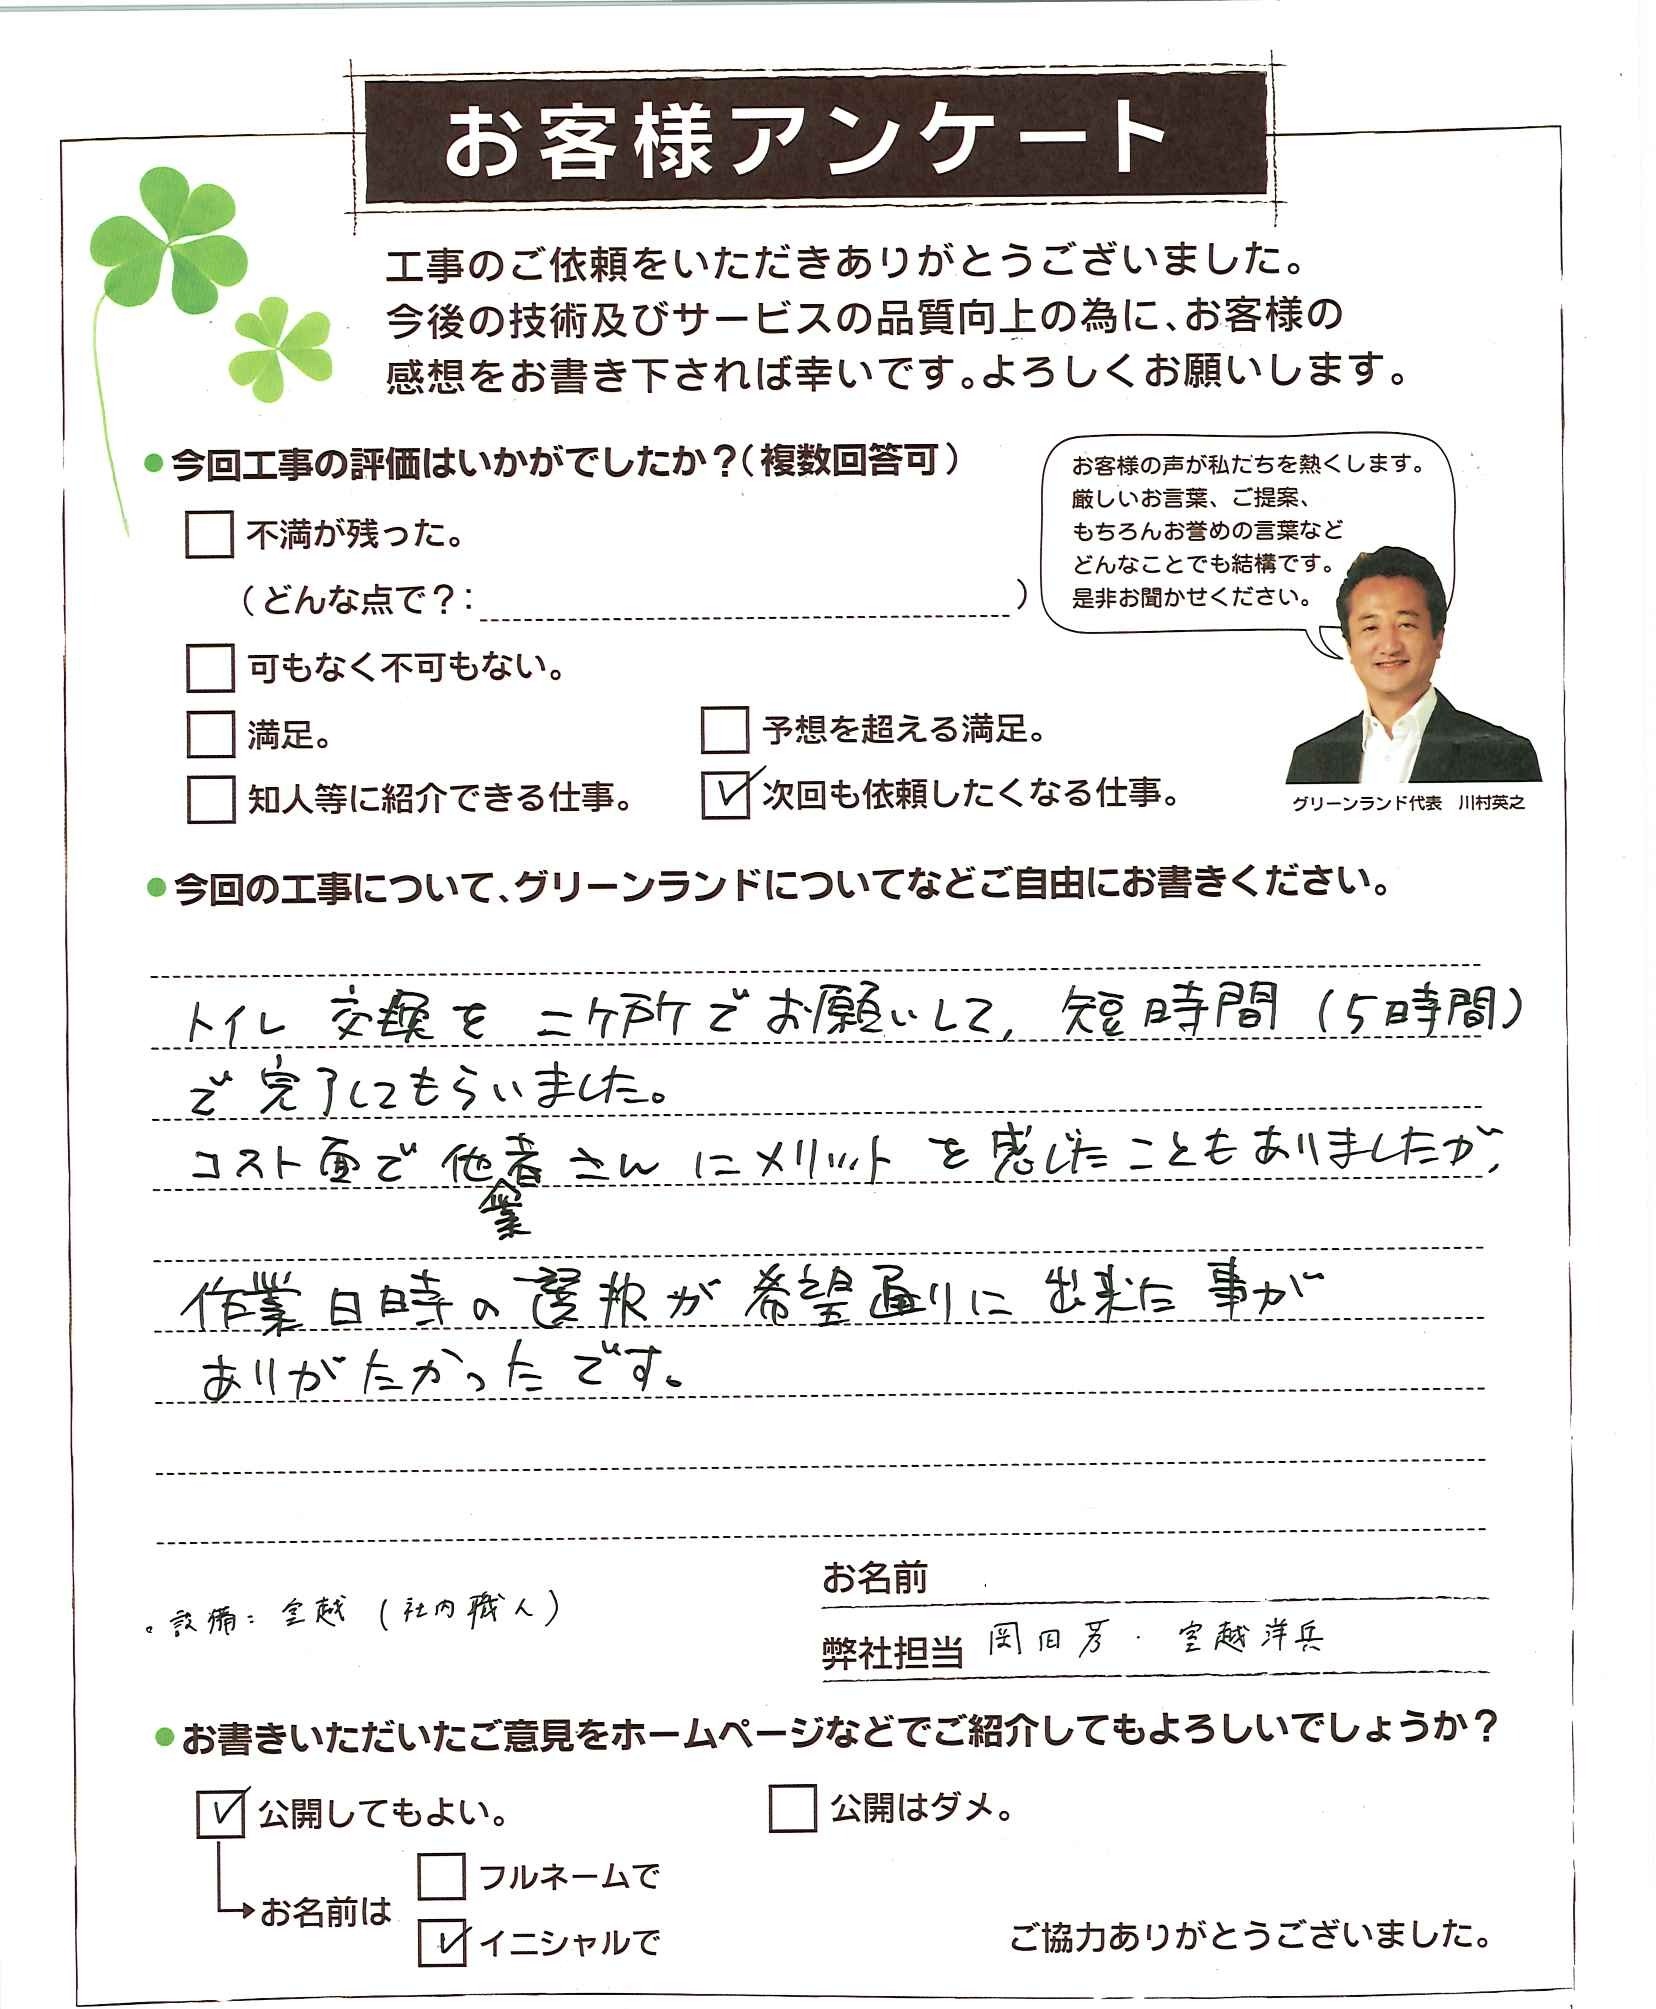 お客様アンケート
工事のご依頼をいただきありがとうございました。
今後の技術及びサービスの品質向上の為に、お客様の
感想をお書き下されば幸いです。よろしくお願いします。
●今回工事の評価はいかがでしたか？（複数回答可）
不満が残った。
（どんな点で？： ）
可もなく不可もない。
満足。
予想を超える満足。
知人等に紹介できる仕事。
次回も依頼したくなる仕事。
お客様の声が私たちを熱くします。
厳しいお言葉、ご提案、
もちろんお誉めの言葉など
どんなことでも結構です。
是非お聞かせください。
グリーンランド代表　川村英之
●今回の工事について、グリーンランドについてなどご自由にお書きください。
トイレ交換を二ケ所でお願いして、短時間（5時間）
で完了してもらいました。
コスト面で他者さんにメリットを感じたこともありましたが、
業
作業日時の選択が希望通りに出来た事が
ありがたかったです。
。設備：室越（社内職人）
お名前
弊社担当 岡田芳・室越洋兵
●お書きいただいたご意見をホームページなどでご紹介してもよろしいでしょうか？
公開してもよい。
公開はダメ。
お名前は
フルネームで
イニシャルで
ご協力ありがとうございました。